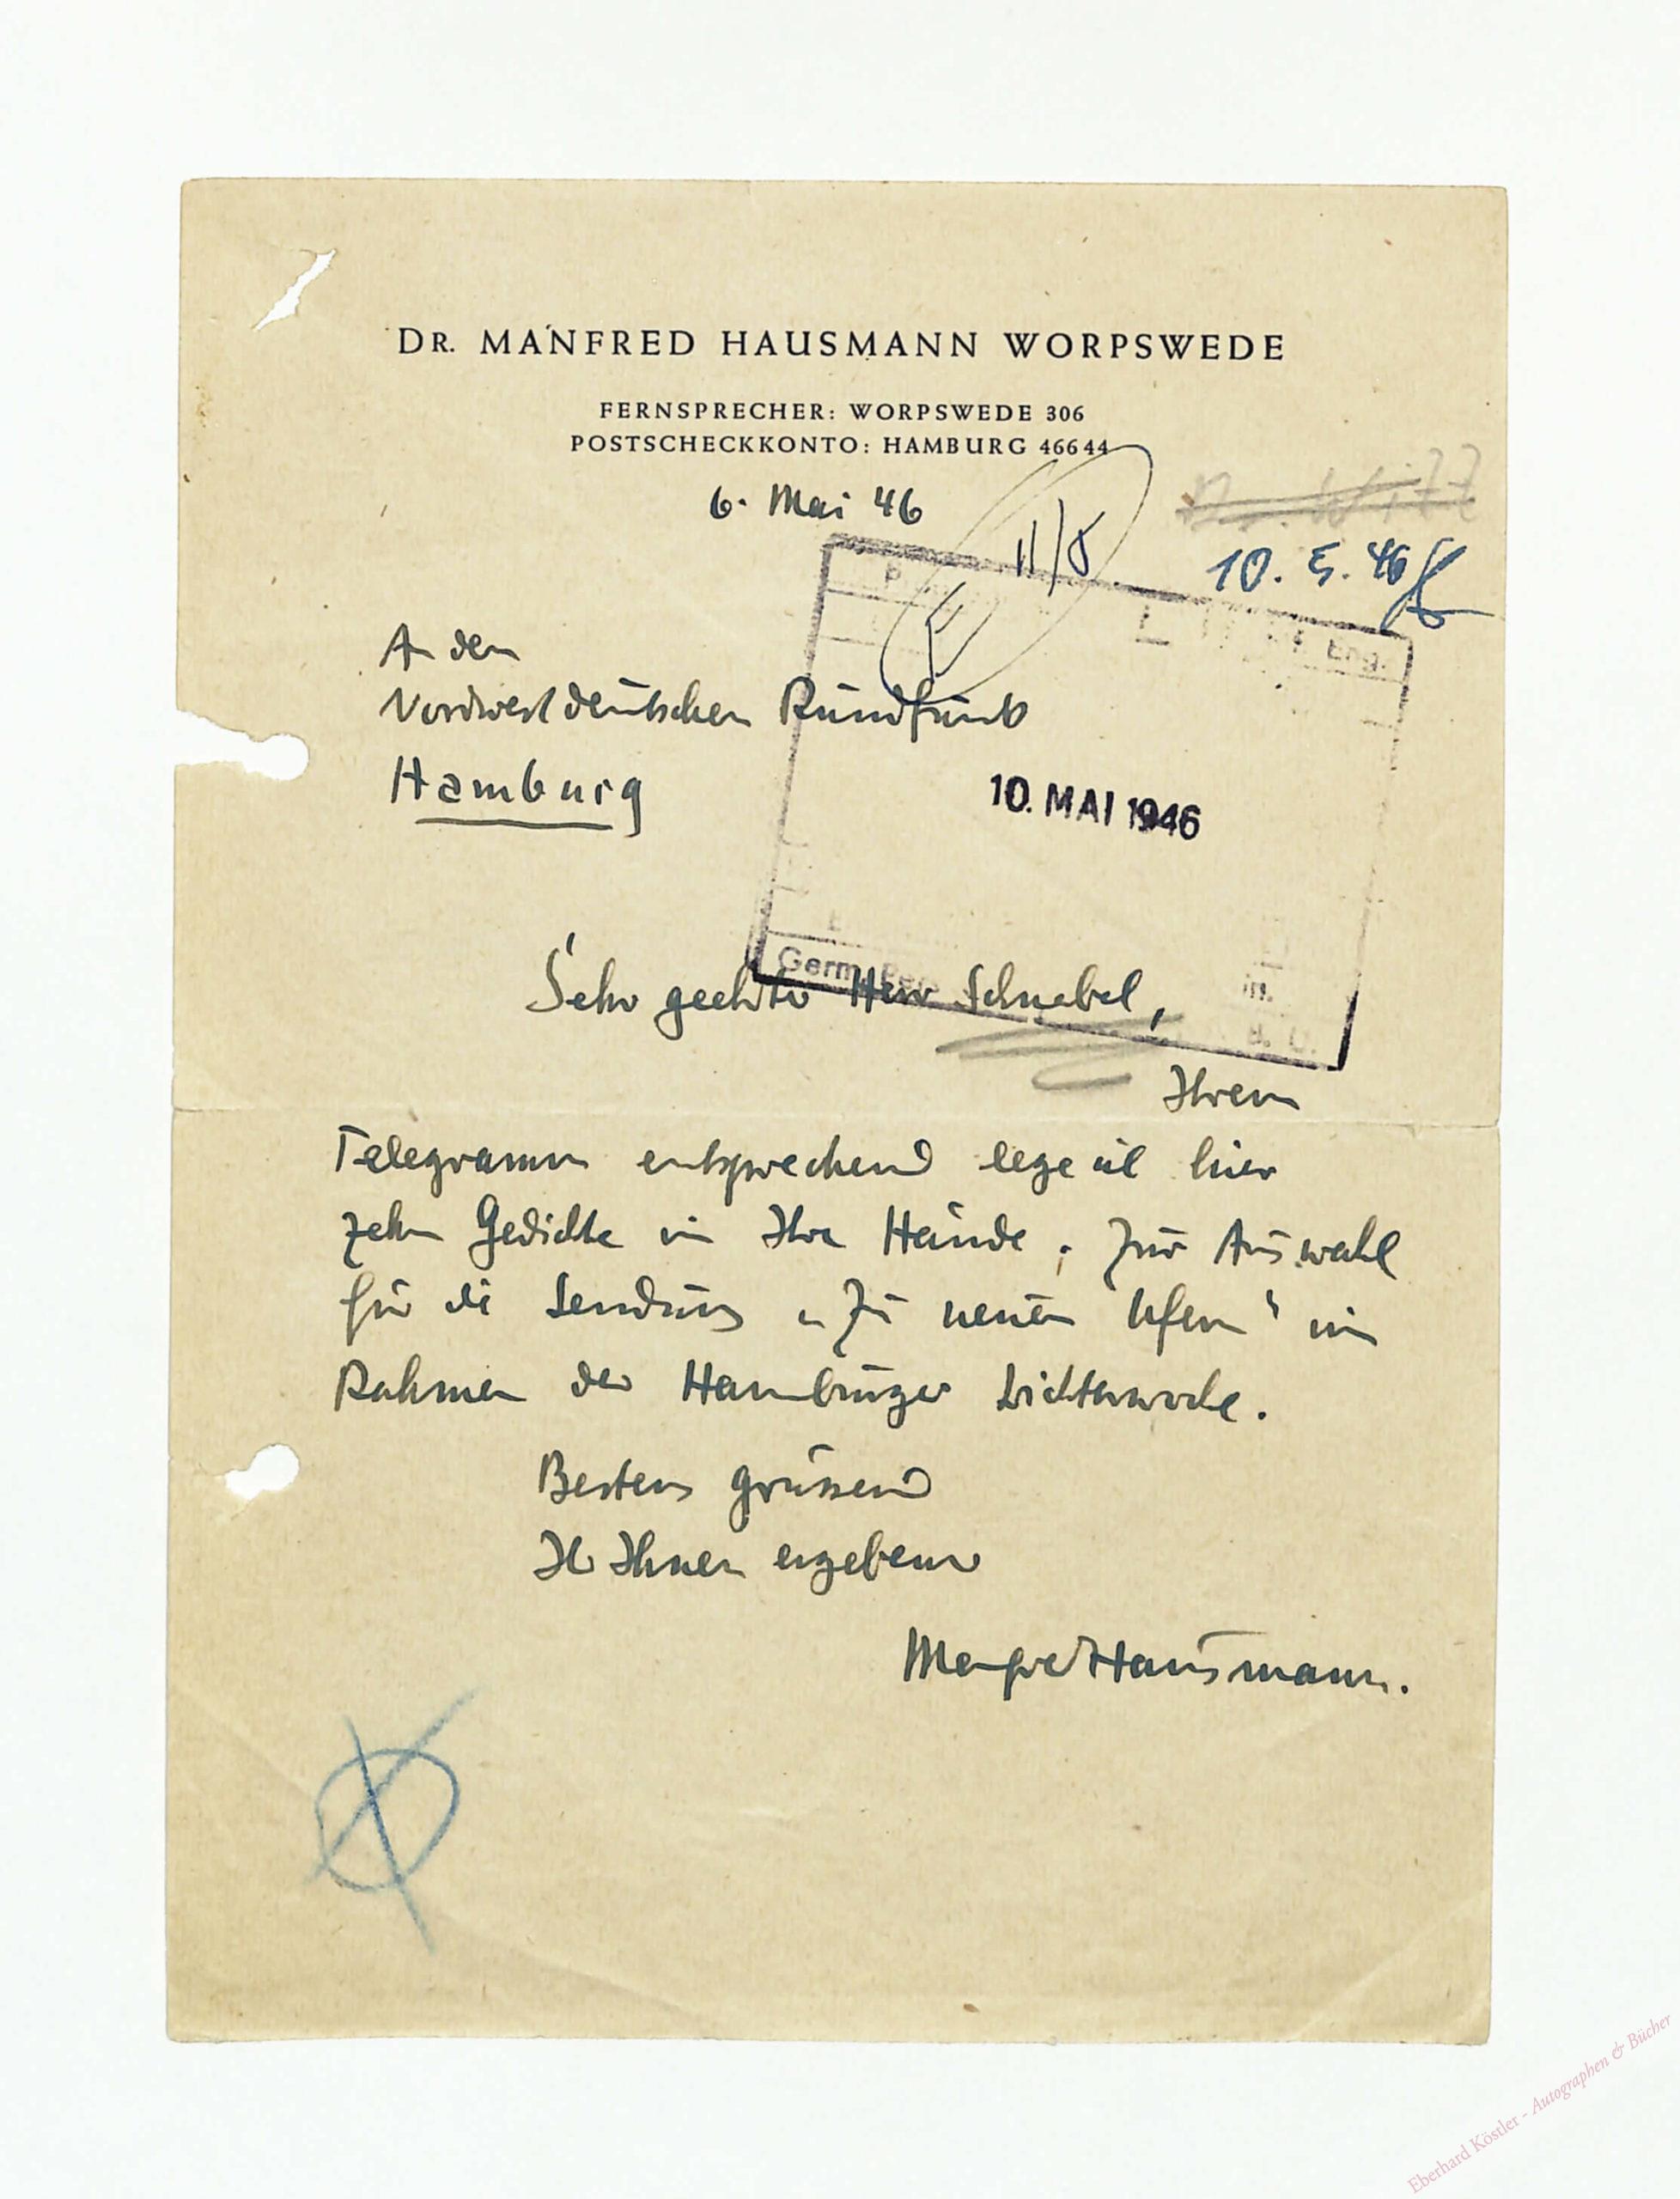 DR. MANFRED HAUSMANN WORPSWEDE
FERNSPRECHER: WORPSWEDE 306
POSTSCHECKKONTO: HAMBURG 46644
6. Mai 46
11/5
10. 5. 46
An den
Nordwestdeutschen Rundfunk
Hamburg
Eng.
10. MAI 1946
Germ.
Sehr geehrter Herr Schnabel,
Ihrem
Telegramm entsprechend lege ich hier
zehn Gedichte in Ihre Hände. Zur Auswahl
für die Sendung „Zu neuen Ufern“ im
Rahmen der Hamburger Dichterwoche.
Bestens grüssend
Ihr Ihnen ergebener
Manfred Hausmann.
Eberhard Köstler - Autographen & Bücher